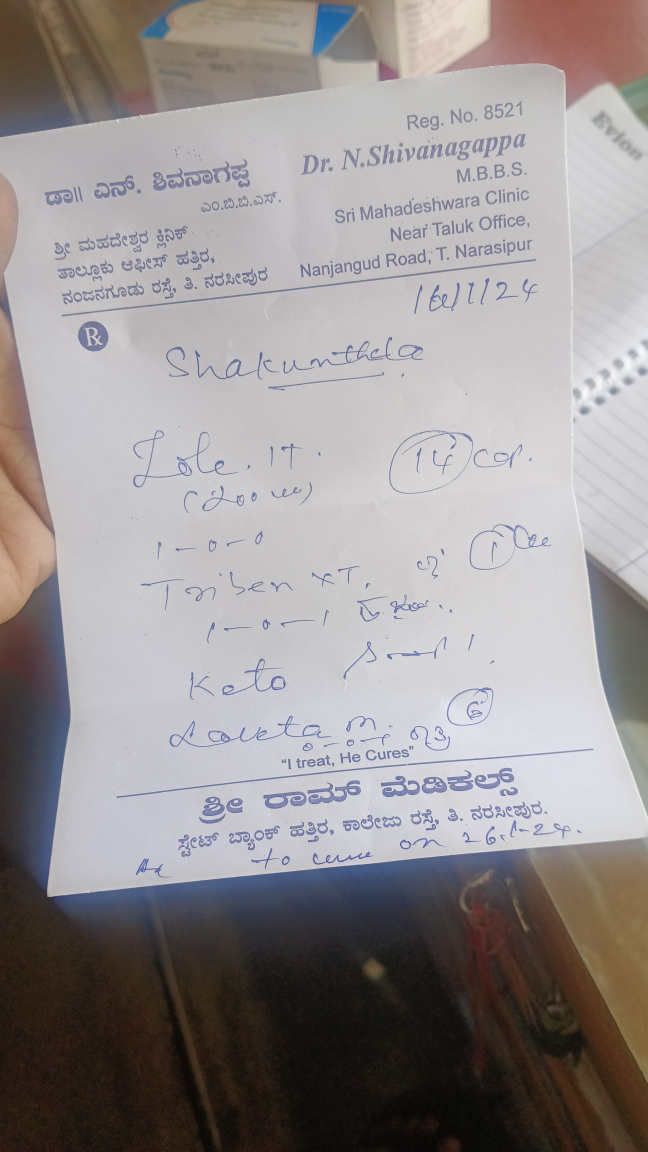 Reg. No. 8521
ಡಾ|| ಎನ್. ಶಿವನಾಗಪ್ಪ
ಎಂ.ಬಿ.ಬಿ.ಎಸ್.
ಶ್ರೀ ಮಹದೇಶ್ವರ ಕ್ಲಿನಿಕ್
ತಾಲ್ಲೂಕು ಆಫೀಸ್ ಹತ್ತಿರ,
ನಂಜನಗೂಡು ರಸ್ತೆ, ತಿ. ನರಸೀಪುರ
Dr. N.Shivanagappa
M.B.B.S.
Sri Mahadeshwara Clinic
Near Taluk Office,
Nanjangud Road, T. Narasipur
Evion
/1/24
Rx
Shakunthala
14 cap.
1-0-0
Triben XT. 1
1-0-1
Keto
6
"I treat, He Cures"
ಶ್ರೀ ರಾಮ್ ಮೆಡಿಕಲ್ಸ್
ಸ್ಟೇಟ್ ಬ್ಯಾಂಕ್ ಹತ್ತಿರ, ಕಾಲೇಜು ರಸ್ತೆ, ತಿ. ನರಸೀಪುರ.
to come on 26.1-24.